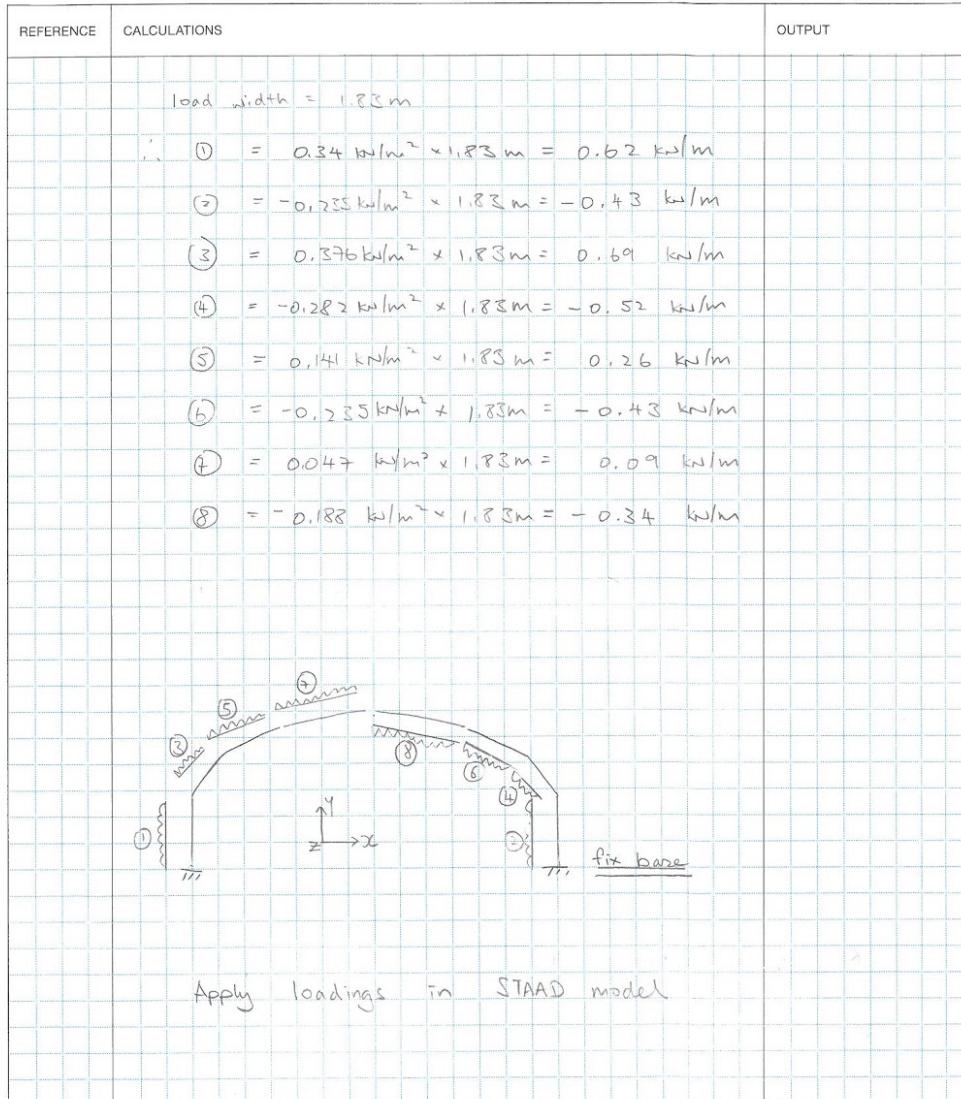 REFERENCE CALCULATIONS OUTPUT
load width = 1.83m
∴ ① = 0.34 kN/m² × 1.83 m = 0.62 kN/m
② = -0.235 kN/m² × 1.83 m = -0.43 kN/m
③ = 0.376 kN/m² × 1.83m = 0.69 kN/m
④ = -0.282 kN/m² × 1.83m = -0.52 kN/m
⑤ = 0.141 kN/m² × 1.83m = 0.26 kN/m
⑥ = -0.235 kN/m² × 1.83m = -0.43 kN/m
⑦ = 0.047 kN/m² × 1.83m = 0.09 kN/m
⑧ = -0.188 kN/m² × 1.83m = -0.34 kN/m
⑦
⑤
③
⑧
⑥
④
① Y
Z x
②
fix base
Apply loadings in STAAD model